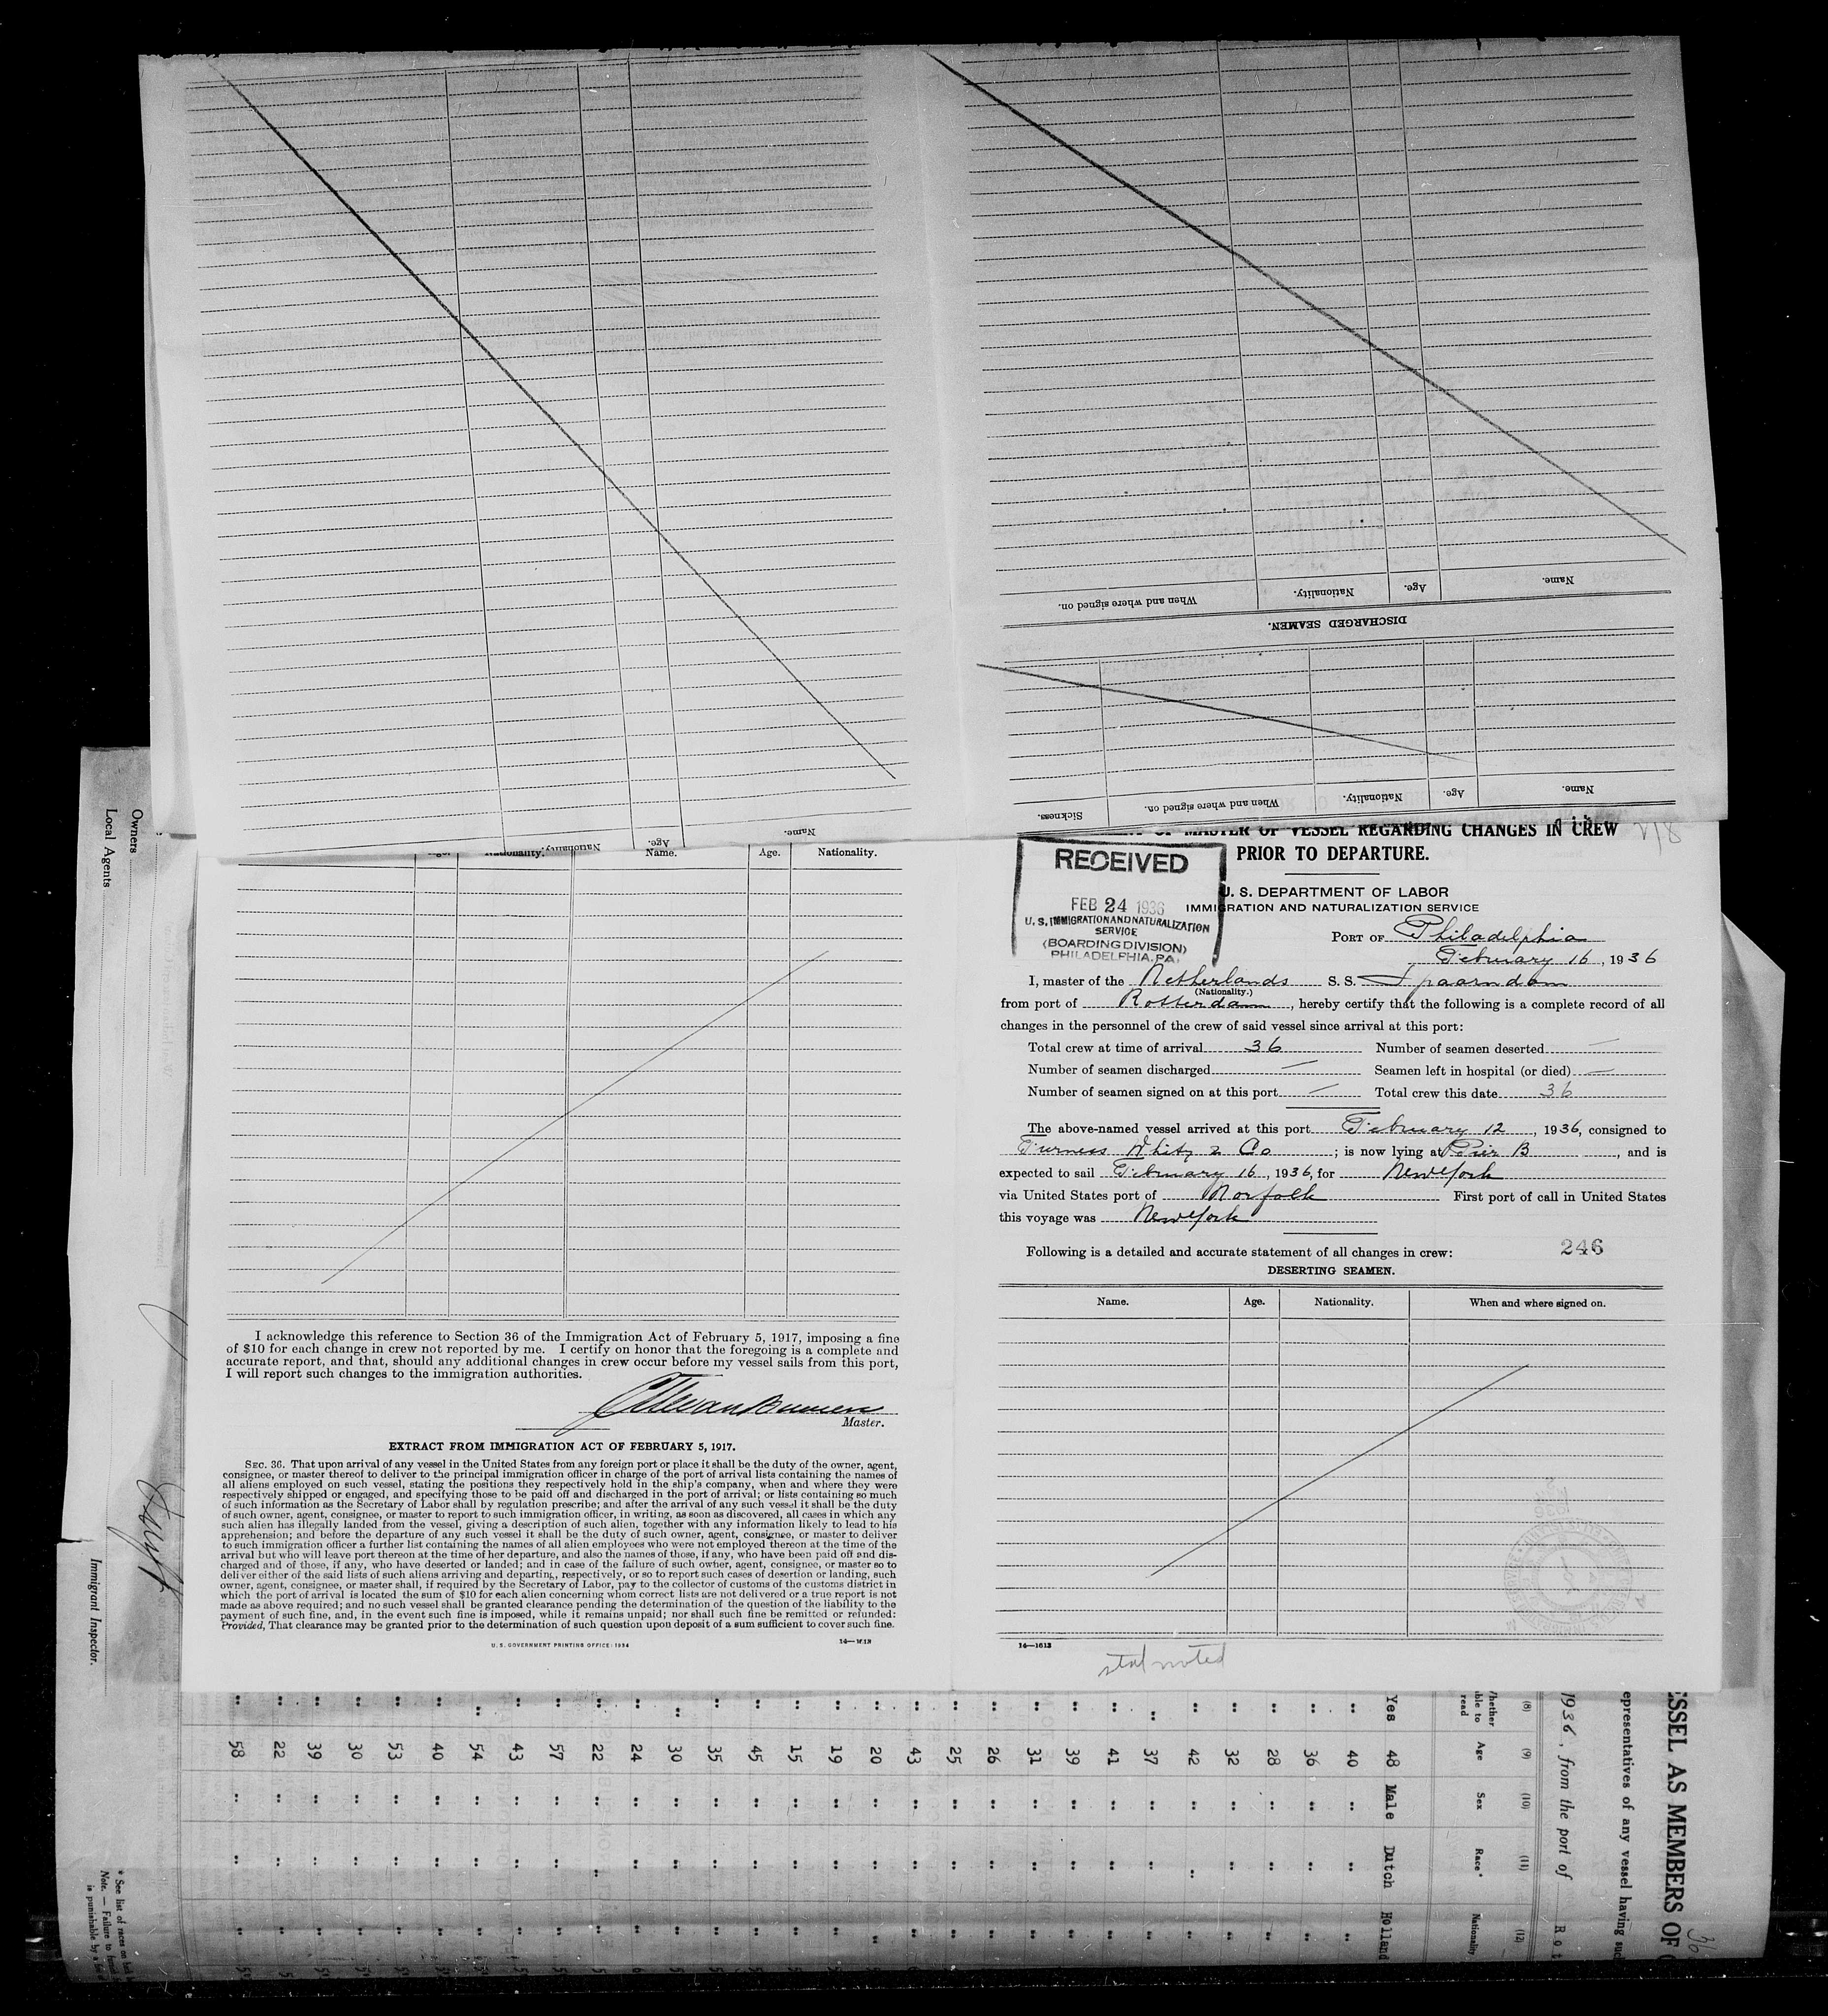 Name. Age. Nationality. When and where signed on.
DISCHARGED SEAMEN.
Name. Age. Nationality. When and where signed on. Sickness.
Name. Age. Nationality.
Nationality. Name. Age. Nationality.
I acknowledge this reference to Section 36 of the Immigration Act of February 5, 1917, imposing a fine
of $10 for each change in crew not reported by me. I certify on honor that the foregoing is a complete and
accurate report, and that, should any additional changes in crew occur before my vessel sails from this port,
I will report such changes to the immigration authorities.
Master.
EXTRACT FROM IMMIGRATION ACT OF FEBRUARY 5, 1917.
SEC. 36. That upon arrival of any vessel in the United States from any foreign port or place it shall be the duty of the owner, agent,
consignee, or master thereof to deliver to the principal immigration officer in charge of the port of arrival lists containing the names of
all aliens employed on such vessel, stating the positions they respectively hold in the ship's company, when and where they were
respectively shipped or engaged, and specifying those to be paid off and discharged in the port of arrival; or lists containing so much
of such information as the Secretary of Labor shall by regulation prescribe; and after the arrival of any such vessel it shall be the duty
of such owner, agent, consignee, or master to report to such immigration officer, in writing, as soon as discovered, all cases in which any
such alien has illegally landed from the vessel, giving a description of such alien, together with any information likely to lead to his
apprehension; and before the departure of any such vessel it shall be the duty of such owner, agent, consignee, or master to deliver
to such immigration officer a further list containing the names of all alien employees who were not employed thereon at the time of the
arrival but who will leave port thereon at the time of her departure, and also the names of those, if any, who have been paid off and dis-
charged and of those, if any, who have deserted or landed; and in case of the failure of such owner, agent, consignee, or master so to
deliver either of the said lists of such aliens arriving and departing, respectively, or so to report such cases of desertion or landing, such
owner, agent, consignee, or master shall, if required by the Secretary of Labor, pay to the collector of customs of the customs district in
which the port of arrival is located the sum of $10 for each alien concerning whom correct lists are not delivered or a true report is not
made as above required; and no such vessel shall be granted clearance pending the determination of the question of the liability to the
payment of such fine, and, in the event such fine is imposed, while it remains unpaid; nor shall such fine be remitted or refunded:
Provided, That clearance may be granted prior to the determination of such question upon deposit of a sum sufficient to cover such fine.
U. S. GOVERNMENT PRINTING OFFICE: 1934
OF MASTER OF VESSEL REGARDING CHANGES IN CREW
PRIOR TO DEPARTURE.
RECEIVED
FEB 24 1936
U. S. IMMIGRATION AND NATURALIZATION
SERVICE
(BOARDING DIVISION)
PHILADELPHIA, PA.
U. S. DEPARTMENT OF LABOR
IMMIGRATION AND NATURALIZATION SERVICE
PORT OF Philadelphia
February 16, 1936
I, master of the Netherlands S. S. Spaarndam
(Nationality.)
from port of Rotterdam, hereby certify that the following is a complete record of all
changes in the personnel of the crew of said vessel since arrival at this port:
Total crew at time of arrival 36 Number of seamen deserted —
Number of seamen discharged — Seamen left in hospital (or died) —
Number of seamen signed on at this port — Total crew this date 36
The above-named vessel arrived at this port February 12, 1936, consigned to
Furness Whity & Co; is now lying at Pier B, and is
expected to sail February 16, 1936, for New York
via United States port of Norfolk First port of call in United States
this voyage was New York
Following is a detailed and accurate statement of all changes in crew: 246
DESERTING SEAMEN.
Name. Age. Nationality. When and where signed on.
14—1613
noted
Owners
Local Agents
Immigrant Inspector.
* See list of races on
Note. — Failure to
is punishable by a
ESSEL AS MEMBERS OF
36
epresentatives of any vessel having such
1936, from the port of Rot
(8) (9) (10) (11) (12)
Whether able to read Age Sex Race* Nationality
Yes 48 Male Dutch Holland
" 40 " " "
" 36 " " "
" 28 " " "
" 32 " " "
" 42 " " "
" 37 " " "
" 41 " " "
" 39 " " "
" 31 " " "
" 26 " " "
" 25 " " "
" 43 " " "
" 20 " " "
" 19 " " "
" 15 " " "
" 45 " " "
" 35 " " "
" 30 " " "
" 24 " " "
" 22 " " "
" 57 " " "
" 43 " " "
" 54 " " "
" 40 " " "
" 53 " " "
" 30 " " "
" 39 " " "
" 22 " " "
" 58 " " "